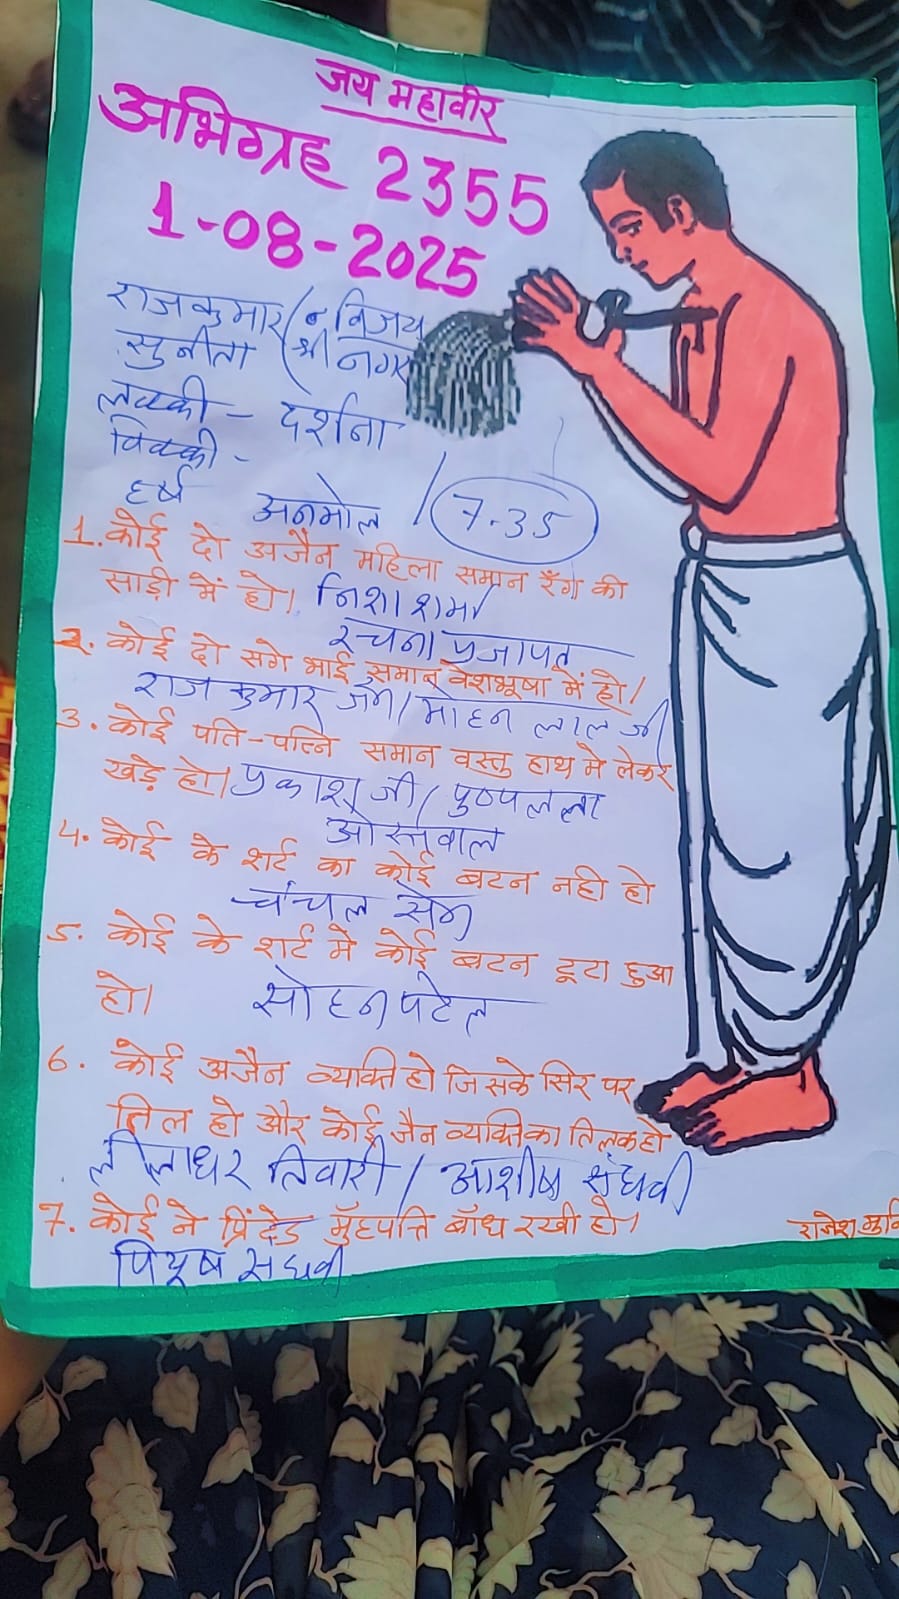 जय महावीर
अभिग्रह 2355
1-08-2025
राजकुमार ( न विजय
सुनीता ( श्री नगर
लक्की - दर्शना
विक्की -
हर्ष अनमोल / 7-35
1. कोई दो अजैन महिला समान रँग की
साड़ी में हो। निशा शर्मा
रचना प्रजापत
2. कोई दो सगे भाई समान वेशभूषा में हो।
राजकुमार जैन / मोहन लाल जी
3. कोई पति-पत्नि समान वस्तु हाथ मे लेकर
खड़े हो। प्रकाश जी / पुष्पलता
ओस्तवाल
4. कोई के शर्ट का कोई बटन नही हो
चंचल सेन
5. कोई के शर्ट मे कोई बटन टूटा हुआ
हो। सोहन पटेल
6. कोई अजैन व्यक्ति हो जिसके सिर पर
तिल हो और कोई जैन व्यक्ति का तिलक हो
लीलाधर तिवारी / आशीष संघवी
7. कोई ने प्रिंटेड मुँहपत्ति बाँध रखी हो।
राजेश मुनि
पियूष संघवी